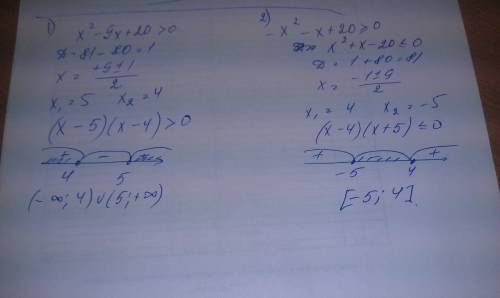 1) x² - 9x + 20 > 0
D - 81 - 80 = 1
x = +9±1 / 2
x₁ = 5 x₂ = 4
(x - 5)(x - 4) > 0
+ - +
4 5
(-∞; 4) ∪ (5; +∞)
2) -x² - x + 20 ≥ 0
x² + x - 20 ≤ 0
D = 1 + 80 = 81
x = -1±9 / 2
x₁ = 4 x₂ = -5
(x - 4)(x + 5) ≤ 0
+ +
-5 4
[-5; 4]